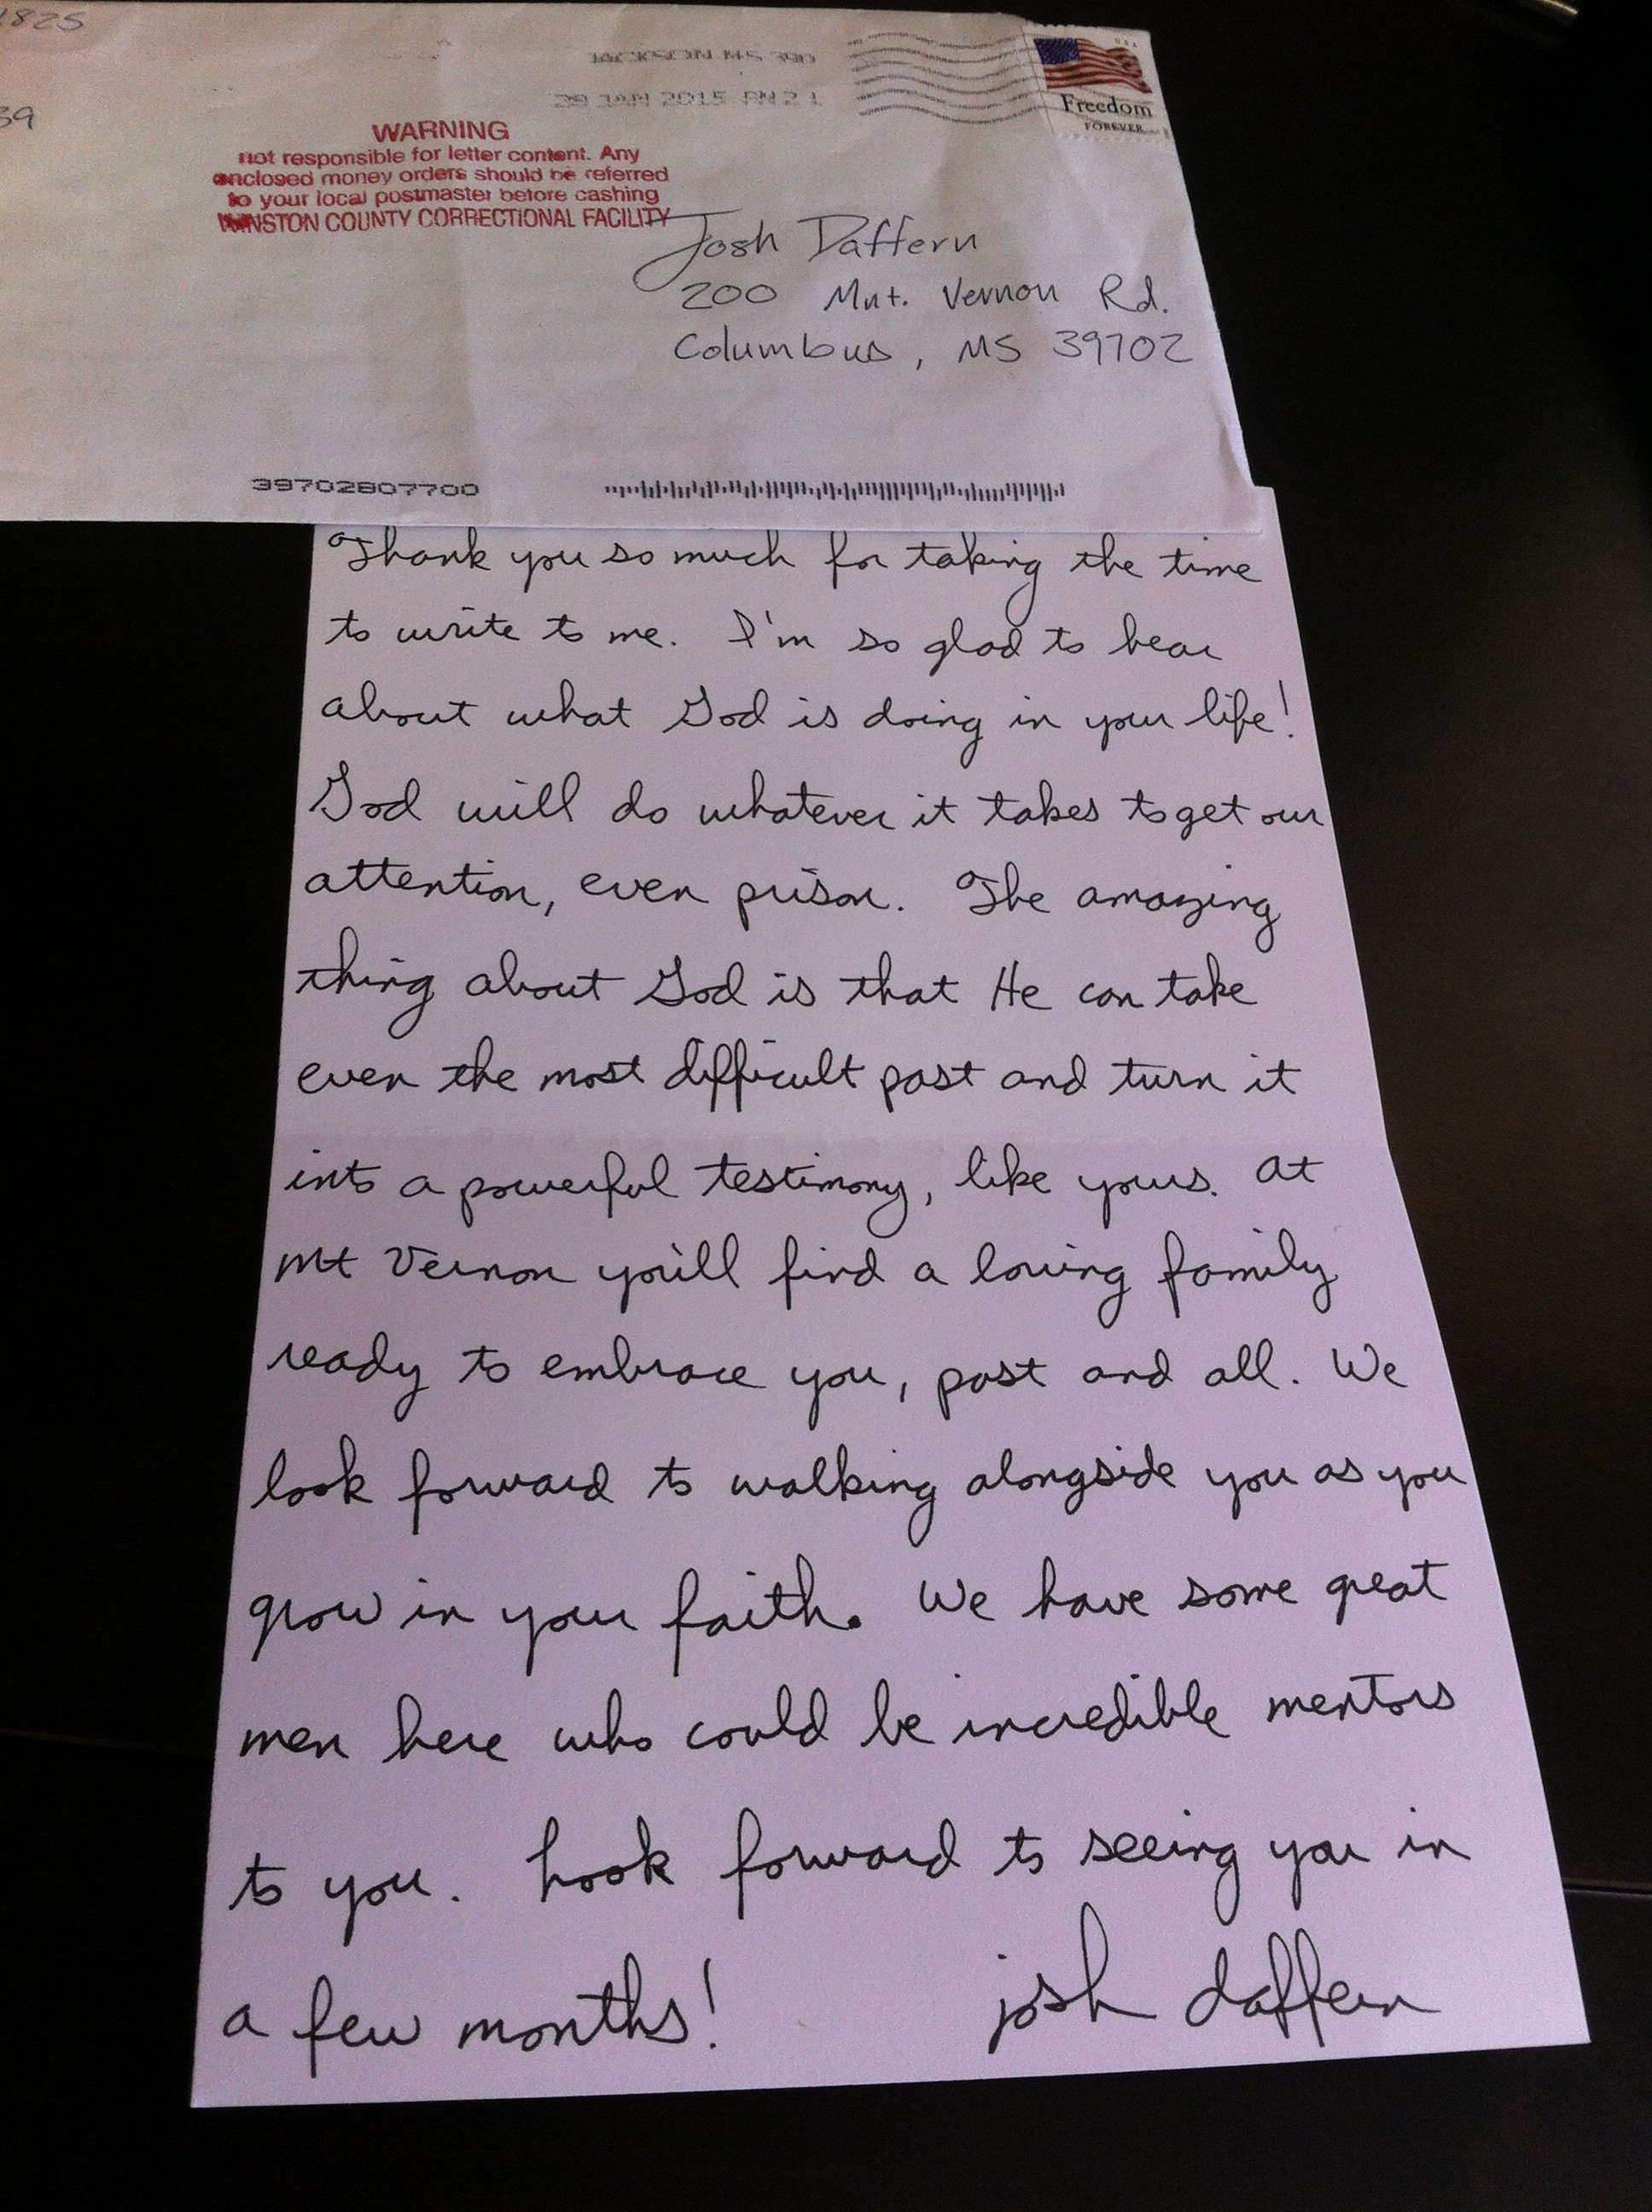 1825
39
JACKSON MS 390
28 JAN 2015 PM 2 L
USA
Freedom
FOREVER
WARNING
not responsible for letter content. Any
enclosed money orders should be referred
to your local postmaster before cashing
WINSTON COUNTY CORRECTIONAL FACILITY
Josh Daffern
200 Mnt. Vernon Rd.
Columbus, MS 39702
39702807700
Thank you so much for taking the time
to write to me. I'm so glad to hear
about what God is doing in your life!
God will do whatever it takes to get our
attention, even prison. The amazing
thing about God is that He can take
even the most difficult past and turn it
into a powerful testimony, like yours. At
Mt Vernon you'll find a loving family
ready to embrace you, past and all. We
look forward to walking alongside you as you
grow in your faith. We have some great
men here who could be incredible mentors
to you. Look forward to seeing you in
a few months! josh daffern